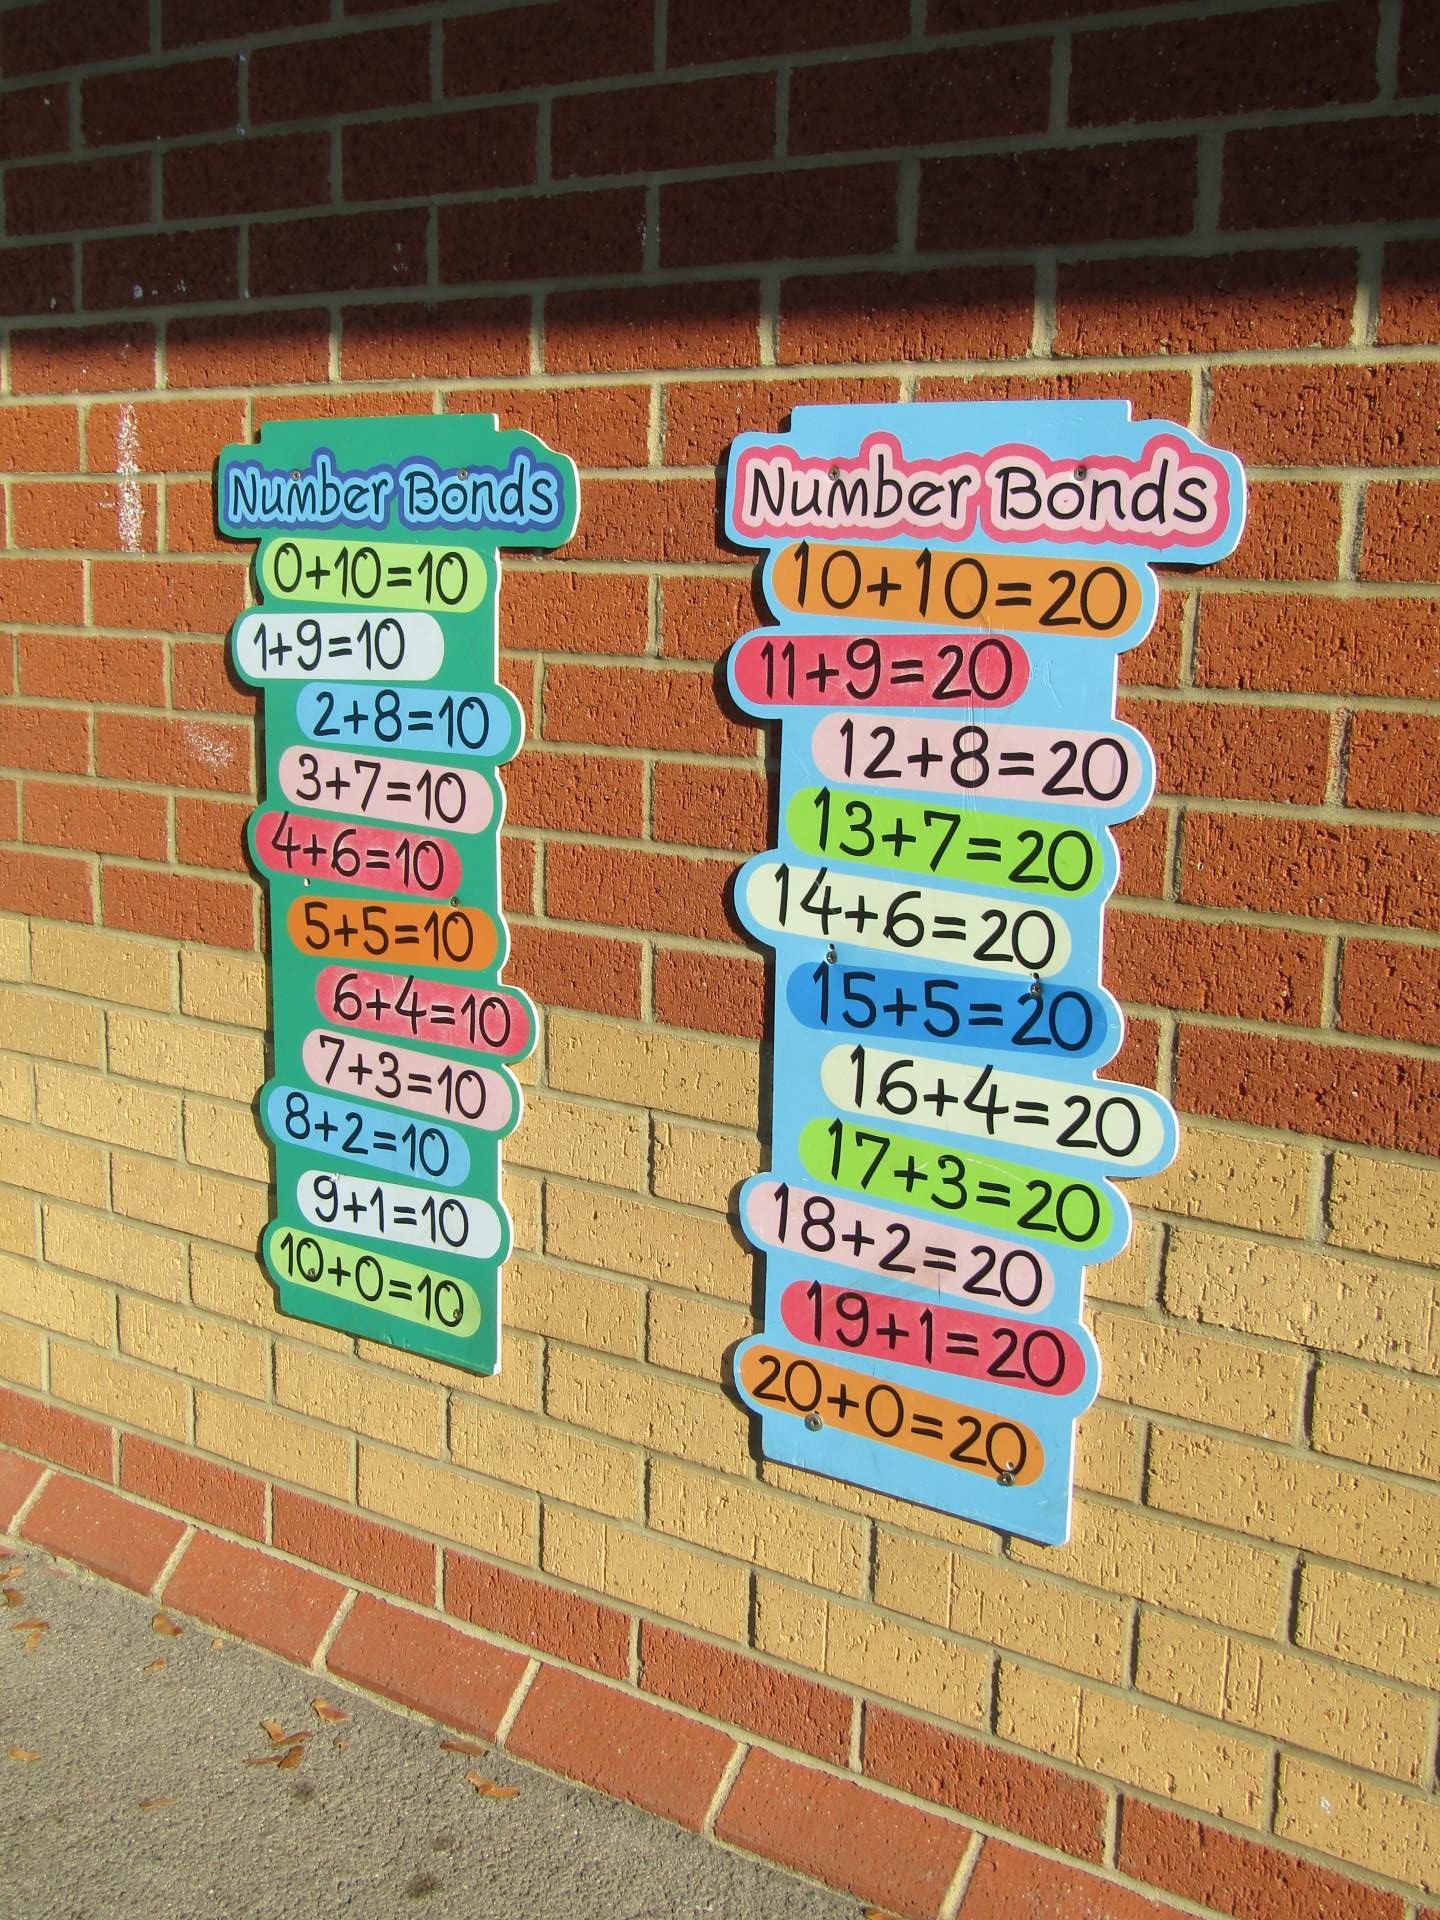 Number Bonds
0+10=10
1+9=10
2+8=10
3+7=10
4+6=10
5+5=10
6+4=10
7+3=10
8+2=10
9+1=10
10+0=10
Number Bonds
10+10=20
11+9=20
12+8=20
13+7=20
14+6=20
15+5=20
16+4=20
17+3=20
18+2=20
19+1=20
20+0=20